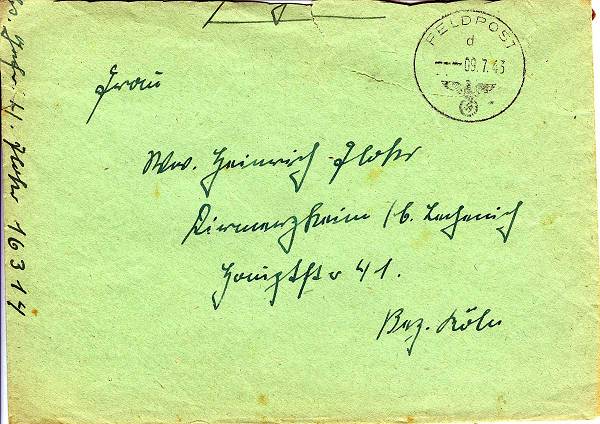 FELDPOST
d
---09.7.43
Frau
Ww. Heinrich Flohr
Dirmerzheim / b. Lechenich
Hauptstr 41.
Bez. Köln
16314